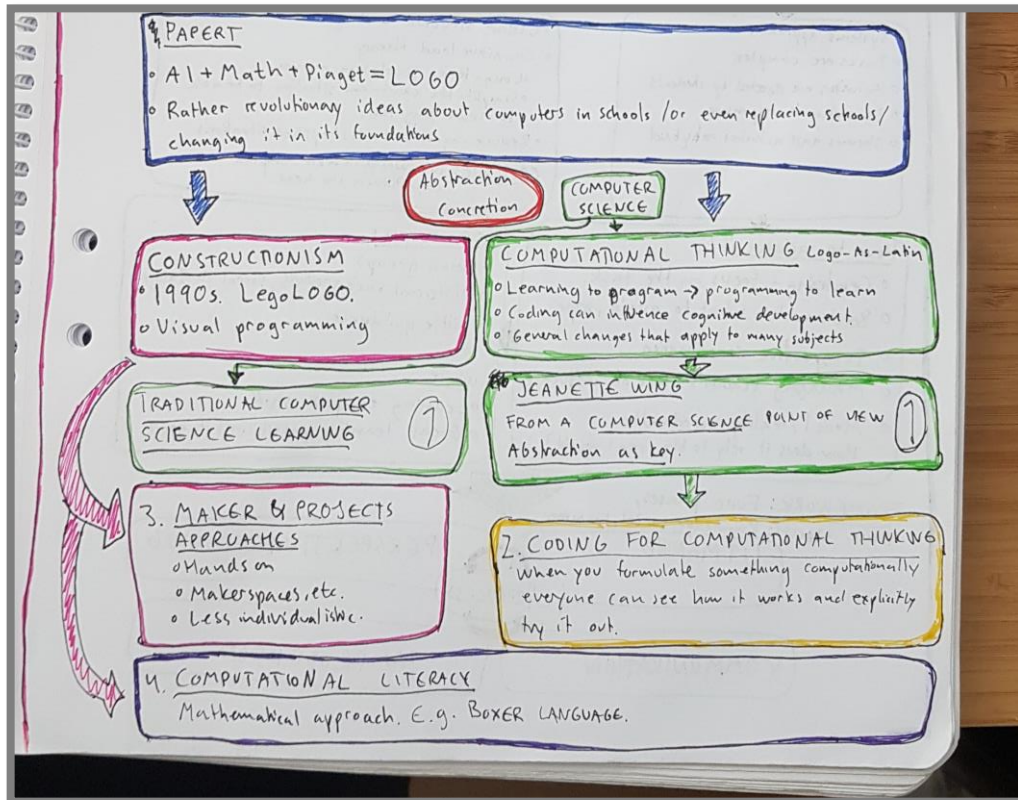 PAPERT
• AI + Math + Piaget = LOGO
• Rather revolutionary ideas about computers in schools /or even replacing schools/
changing it in its foundations
Abstraction
Concretion
COMPUTER
SCIENCE
CONSTRUCTIONISM
• 1990s. LegoLOGO.
• Visual programming
COMPUTATIONAL THINKING Logo-As-Latin
• Learning to program → programming to learn
• Coding can influence cognitive development.
• General changes that apply to many subjects
TRADITIONAL COMPUTER
SCIENCE LEARNING
1
JEANETTE WING
FROM A COMPUTER SCIENCE POINT OF VIEW
Abstraction as key.
1
3. MAKER & PROJECTS
APPROACHES
• Hands on
• Makerspaces, etc.
• Less individualistic.
2. CODING FOR COMPUTATIONAL THINKING
When you formulate something computationally
everyone can see how it works and explicitly
try it out.
4. COMPUTATIONAL LITERACY
Mathematical approach. E.g. BOXER LANGUAGE.